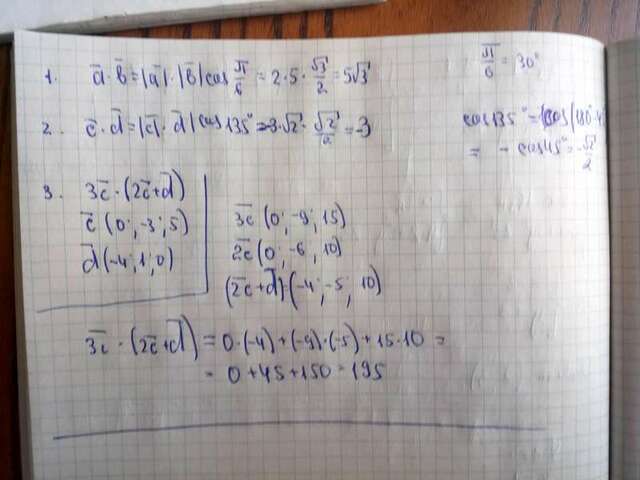 1. a̅·b̅ = |a̅|·|b̅| cos π/6 = 2·5·√3/2 = 5√3
π/6 = 30°
2. c̅·d̅ = |c̅|·|d̅| cos 135° = -3√2·√2/2 = -3
cos 135° = cos(180°-4
= - cos 45° = -√2/2
3. 3c̅·(2c̅+d̅)
c̅(0;-3;5)
d̅(-4;1;0)
3c̅(0;-9;15)
2c̅(0;-6;10)
(2c̅+d̅)(-4;-5;10)
3c̅·(2c̅+d̅) = 0·(-4)+(-9)·(-5)+15·10 =
= 0+45+150 = 195